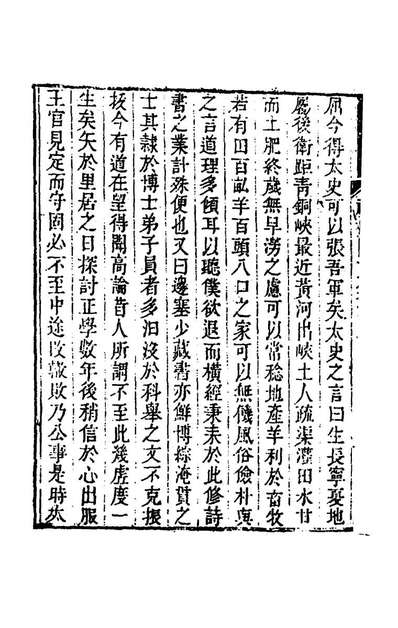 屈今得太史可以張吾軍矣太史之言曰生長寧夏地
屬後衛距青銅峽最近黃河出峽土人疏渠灌田水甘
而土肥終歲無旱澇之慮可以當稔地產羊利於畜牧
若有田百畝羊百頭八口之家可以無饑風俗儉朴與
之言道理多傾耳以聽僕欲退而橫經秉耒於此修詩
書之業計殊便也又曰邊塞少藏書亦鮮博綜淹貫之
士其隸於博士弟子員者多汩沒於科舉之文不克振
拔今有道在望得聞高論昔人所謂不至此幾虛度一
生矣矢於里居之日探討正學數年後稍信於心出服
王官見定而守固必不至中途改轍敗乃公事是時故